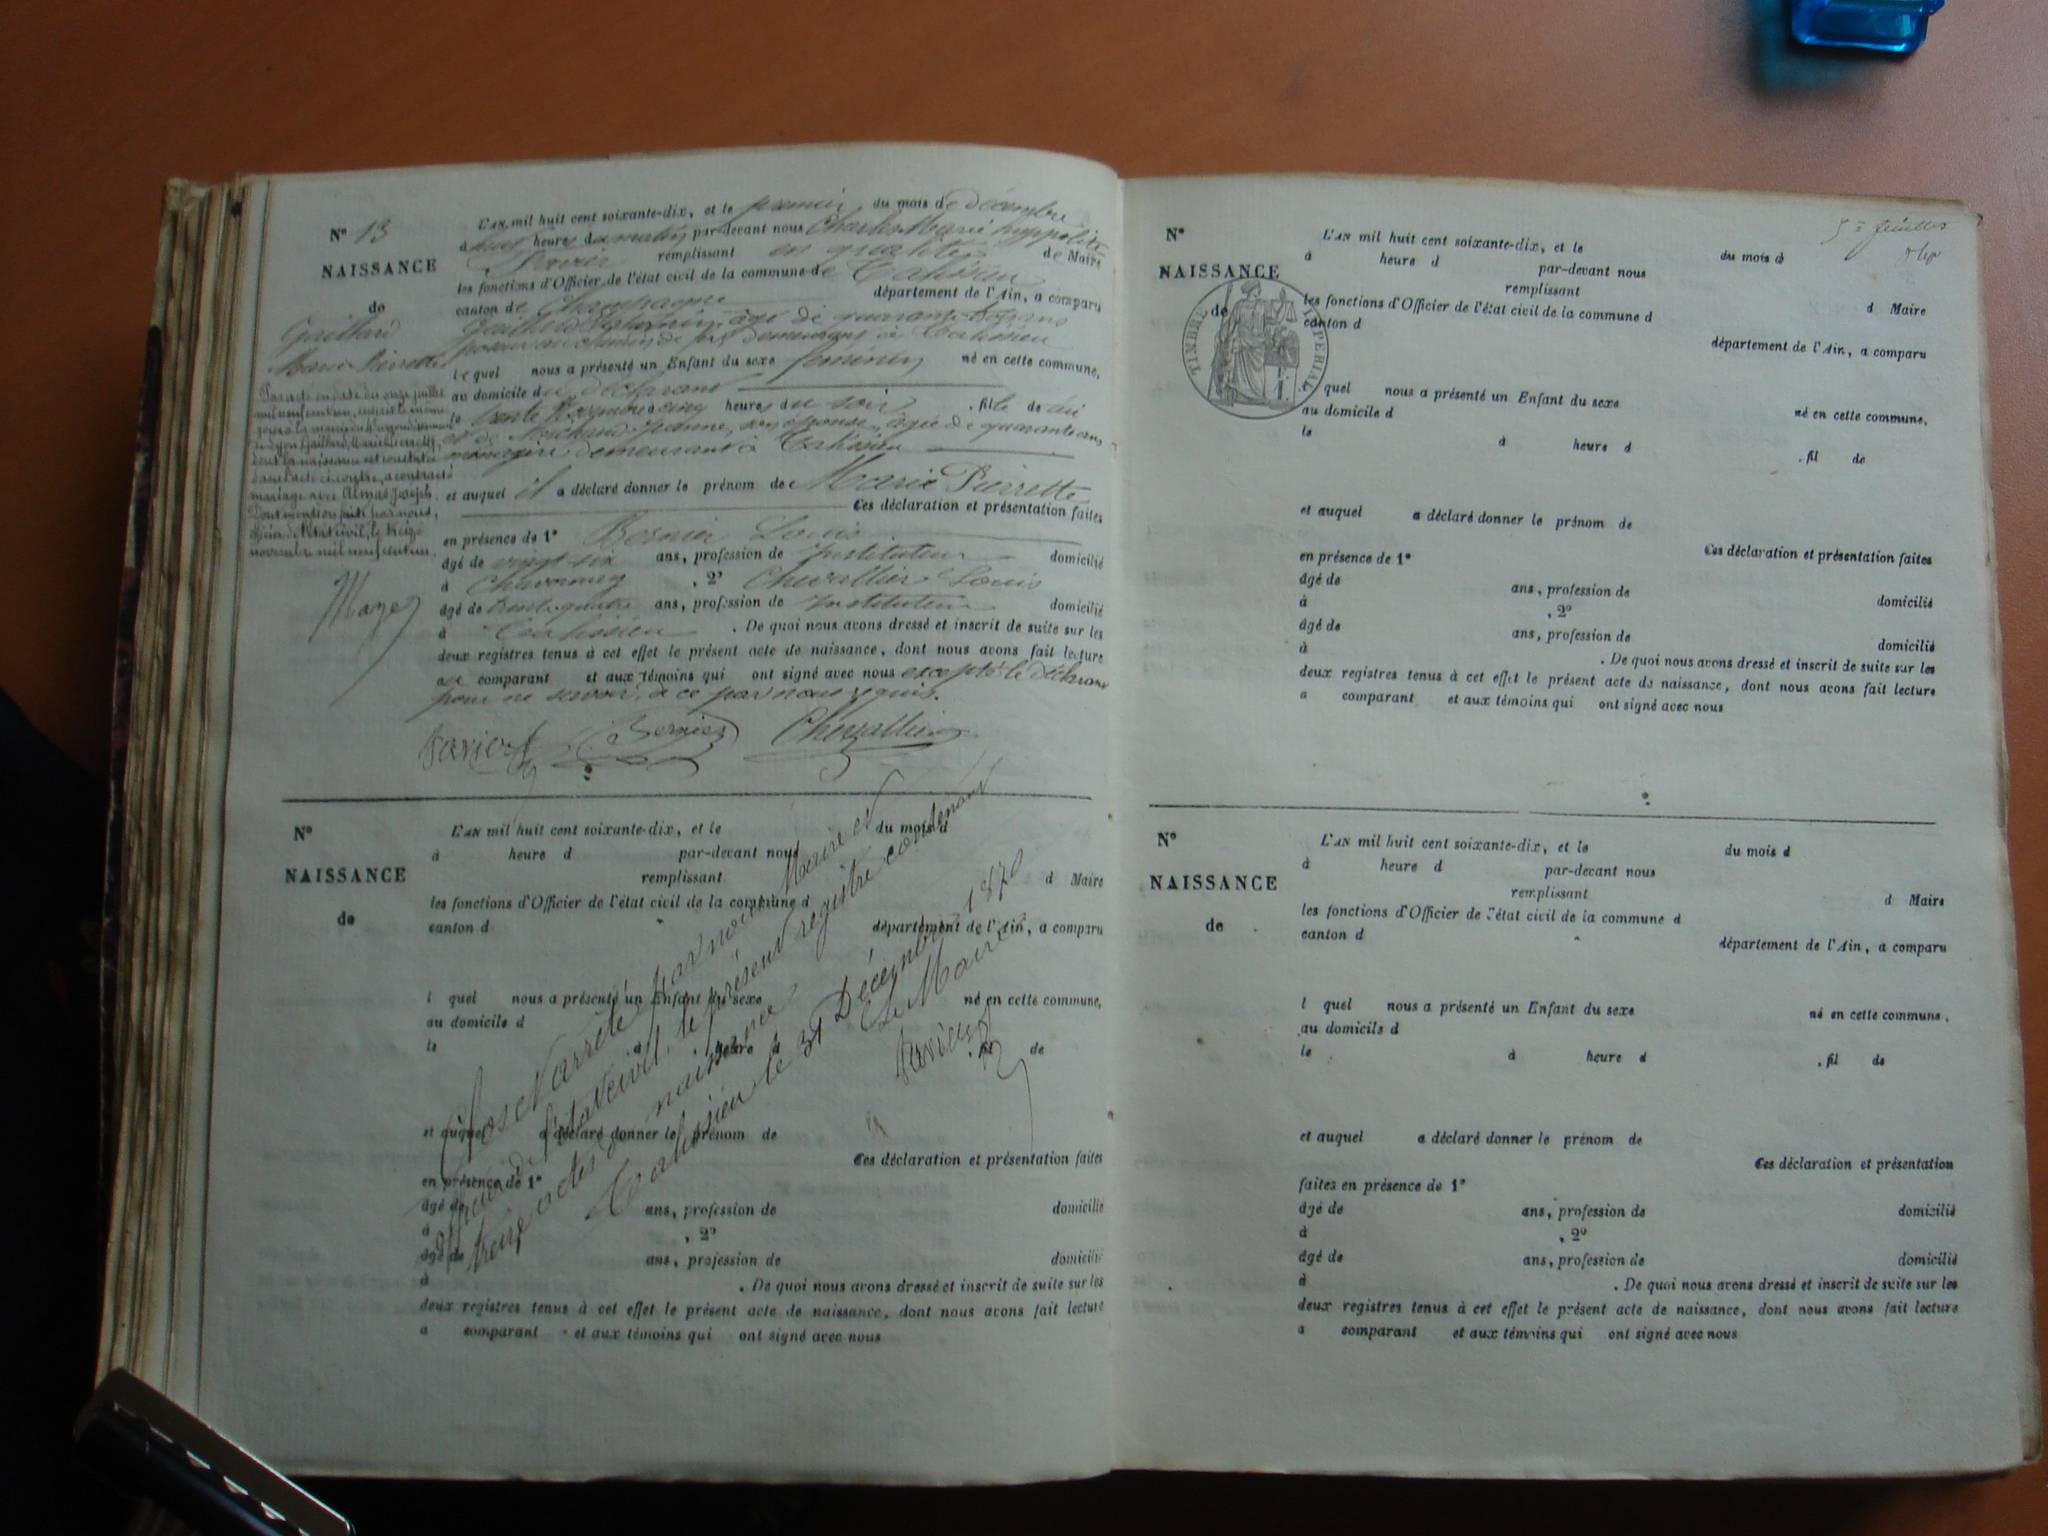 N° 13
NAISSANCE
de
Gaillard
Marie Pierrette
L'AN mil huit cent soixante-dix, et le premier du mois de décembre
à huit heures du matin par-devant nous Charles Marie hyppolite
remplissant en qualité de Maire
les fonctions d'Officier de l'état civil de la commune de
canton de Champagne département de l'Ain, a comparu
Gaillard âgé de quarante ans
demeurant à
le quel nous a présenté un Enfant du sexe féminin né en cette commune,
au domicile du déclarant
le trente Novembre à cinq heures du soir . fille de lui
et de Jeanne, son épouse, âgée de quarante ans,
ménagère demeurant à
et auquel il a déclaré donner le prénom de Marie Pierrette
Ces déclaration et présentation faites
en présence de 1° Bernier Louis
âgé de vingt six ans, profession de Instituteur domicilié
à , 2° Chevallier Louis
âgé de trente quatre ans, profession de Instituteur domicilié
à . De quoi nous avons dressé et inscrit de suite sur les
deux registres tenus à cet effet le présent acte de naissance, dont nous avons fait lecture
au comparant et aux témoins qui ont signé avec nous excepté le déclarant
pour ne savoir, de ce par nous requis.
Bernier Chevallier
Par acte en date du onze juillet
mil neuf cent un, inscrit le même
jour à la mairie du arrondissement
de Lyon, Gaillard, Marie Pierrette,
dont la naissance est constatée
dans l'acte ci-contre, a contracté
mariage avec Joseph.
Dont mention faite par nous,
officier de l'état civil, le treize
novembre mil neuf cent un.
N°
NAISSANCE
de
L'AN mil huit cent soixante-dix, et le du mois d
à heure d par-devant nous
remplissant d Maire
les fonctions d'Officier de l'état civil de la commune d
canton d département de l'Ain, a comparu
l quel nous a présenté un Enfant du sexe né en cette commune,
au domicile d
le à heure d . fil de
et auquel a déclaré donner le prénom de
Ces déclaration et présentation faites
en présence de 1°
âgé de ans, profession de domicilié
à , 2°
âgé de ans, profession de domicilié
à . De quoi nous avons dressé et inscrit de suite sur les
deux registres tenus à cet effet le présent acte de naissance, dont nous avons fait lecture
a comparant et aux témoins qui ont signé avec nous
Clos et arrêté par nous Maire et
officier de l'état civil, le présent registre contenant
treize actes de naissance
le 31 Décembre 1870
Le Maire
5e feuillet
N°
NAISSANCE
de
TIMBRE IMPERIAL
L'AN mil huit cent soixante-dix, et le du mois d
à heure d par-devant nous
remplissant d Maire
les fonctions d'Officier de l'état civil de la commune d
canton d département de l'Ain, a comparu
l quel nous a présenté un Enfant du sexe né en cette commune,
au domicile d
le à heure d . fil de
et auquel a déclaré donner le prénom de
Ces déclaration et présentation faites
en présence de 1°
âgé de ans, profession de domicilié
à , 2°
âgé de ans, profession de domicilié
à . De quoi nous avons dressé et inscrit de suite sur les
deux registres tenus à cet effet le présent acte de naissance, dont nous avons fait lecture
a comparant et aux témoins qui ont signé avec nous
N°
NAISSANCE
de
L'AN mil huit cent soixante-dix, et le du mois d
à heure d par-devant nous
remplissant d Maire
les fonctions d'Officier de l'état civil de la commune d
canton d département de l'Ain, a comparu
l quel nous a présenté un Enfant du sexe né en cette commune,
au domicile d
le à heure d . fil de
et auquel a déclaré donner le prénom de
Ces déclaration et présentation
faites en présence de 1°
âgé de ans, profession de domicilié
à , 2°
âgé de ans, profession de domicilié
à . De quoi nous avons dressé et inscrit de suite sur les
deux registres tenus à cet effet le présent acte de naissance, dont nous avons fait lecture
a comparant et aux témoins qui ont signé avec nous